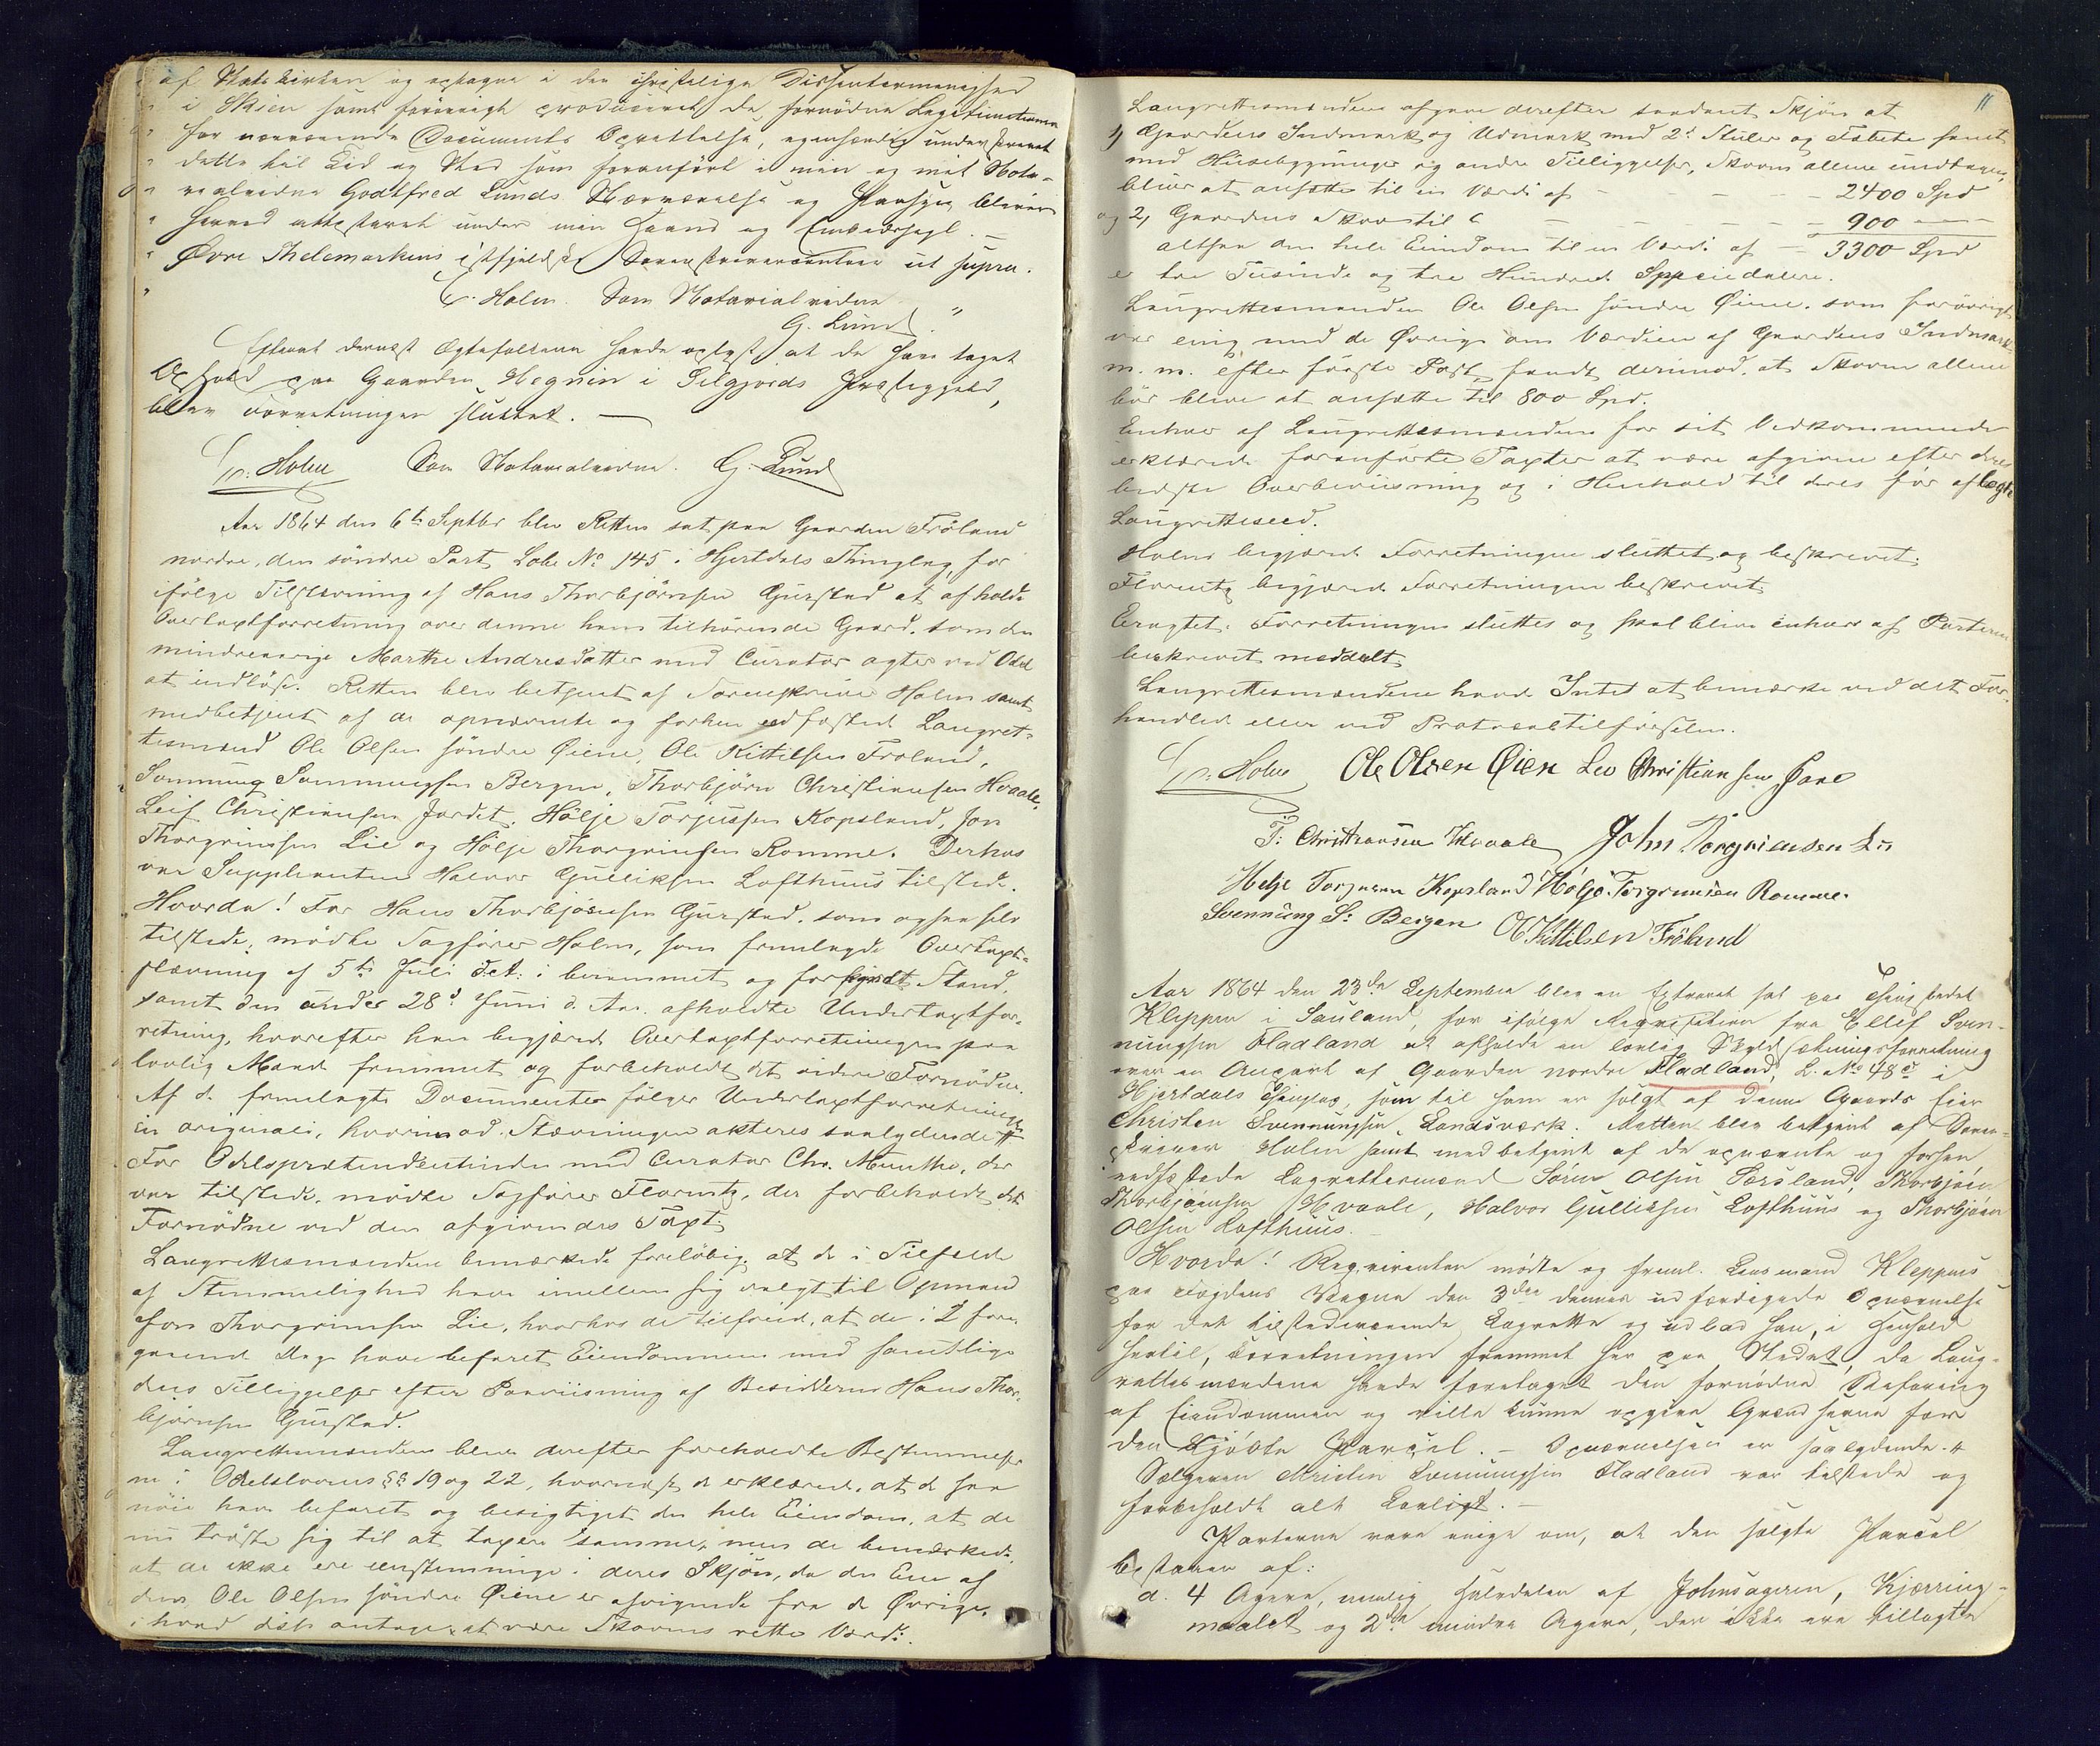 af Statskirken og optagne i den christelige Dissentermenighed
i Skien samt forövrigt produceret de fornödne Legitimationer
for nærværende Documents Oprettelse, egenhændig underskrevet
dette til Tid og Sted som foranfört i min og mit Nota-
rialvidne Godtfred Lunds Nærværelse og Paasyn bliver
herved attesteret under min Haand og Embedssegl. —
Övre Thelemarkens östfjeldske Sorenskrivercontoir ut supra.
C. Holm. Som Notarialvidne
G. Lund."
Efterat dernæst Ægtefolkene havde oplyst at de have taget
Ophold paa Gaarden Hegnin i Silgjords Præstegjeld,
blev Forretningen sluttet. —
C. Holm Som Notarialvidne. G. Lund
Aar 1864 den 6te Septbr blev Retten sat paa Gaarden Fröland
nordre, den söndre Part Löbe No 145 i Hjertdals Thinglag, for
ifölge Tilstævning af Hans Thorbjörnsen Gurstad at afholde
Overtaxtforretning over denne ham tilhörende Gaard, som den
mindreaarige Marthe Andresdatter med Curator agter ved Odel
at indlöse. Retten blev betjent af Sorenskriver Holm samt
medbetjent af de opnævnte og forhen edfæstede Laugret-
tesmænd Ole Olsen söndre Öiene, Ole Kittilsen Froland,
Svennung Svennungsen Bergen, Thorbjörn Christiansen Hvaale,
Leif Christiansen Jordet, Hölje Torjussen Kopsland, Jon
Thorgrimsen Lie og Hölje Thorgrimsen Romme. Derhos
var Supplianten Halvor Gulliksen Lofthuus tilstede.
Hvorda! For Hans Thorbjörnsen Gurstad, som ogsaa selv
tilstede, mödte Sagförer Holm, som fremlagde Overtaxt-
stævning af 5te Juli d.A. i berammet og forkyndt Stand,
samt den under 28de Juni d. Aar afholdte Undertaxtfor-
retning, hvorefter han begjærede Overtaxtforretningen paa
lovlig Maade fremmet og forbeholdt det videre Fornödne.
Af de fremlagte Documenter fölger Undertaxtforretningen
in originali, hvorimod Stævningen akteres saalydende #
For Odelsprætendentinden med Curator Chr. Munthe, der
var tilstede, mödte Sagförer Florentz, der forbeholdt det
Fornödne ved den afgivendes Taxt.
Laugrettesmændene bemærkede foreløbig, at de i Tilfælde
af Stemmelighed have imellem sig valgt til Opmand
Jon Thorgrimsen Lie, hvorhos de tilföied, at de i 2 fore-
gaaende Dage have befaret Eiendommen med samtlige
dens Tilliggelser efter Paaviisning af Besidderen Hans Thor-
björnsen Gurstad.
Laugrettesmændene blev derefter foreholdte Bestemmelser-
ne i Odelslovens §§ 19 og 22, hvornæst de erklærede, at de saa
nöie have befaret og besigtiget den hele Eiendom, at de
nu tröste sig til at taxere samme, men de bemærkede,
at de ikke ere eenstemmige i deres Skjön, da den Ene af
dem Ole Olsen söndre Öiene er afvigende fra de Övrige,
i hvad disse antage at være Skovens rette Værdi.
11
Laugrettesmændene afgave derefter saadant Skjön at
1, Gaardens Indmark og Udmark med 2de Stuler og Fæbeite samt
med Huusebygninger og andre Tilliggelser, Skoven allene undtagen,
bliver at ansætte til en Værdi af — — — 2400 Spd
og 2, Gaardens Skov til — — — — — 900 —
altsaa den hele Eiendom til en Værdi af — 3300 Spd
er tre Tusinde og tre Hundrede Speciedalere.
Laugrettesmanden Ole Olsen söndre Öiene, som forövrigt
var enig med de Övrige om Værdien af Gaardens Indmark
m. m. efter förste Post, fandt derimod, at Skoven allene
bör blive at ansætte til 800 Spd.
Enhver af Laugrettesmændene for sit Vedkommende
erklærede foranförte Taxter at være afgivne efter deres
bedste Overbeviisning og i Henhold til deres för aflagte
Laugretteseed.
Holm begjærede Forretningen sluttet og beskrevet.
Florentz begjærede Forretningen beskrevet.
Eragtet: Forretningen sluttes og skal blive enhver af Parterne
beskrevet meddeelt.
Laugrettesmændene havde Intet at bemærke ved det For-
handlede eller ved Protocoltilförselen.
C. Holm Ole Olsen Öien Lev Christiansen Jore
T: Christiansen Hvaale John Torgrimsen Li
Helje Torjusen Kopsland Hölje Torgrimsen Romme.
Svennung S: Bergen O Kittilsen Fröland
Aar 1864 den 23de September blev en Extraret sat paa Thingstedet
Kleppen i Sauland, for ifølge Requisition fra Ellef Sven-
nungsen Fladland at afholde en lovlig Skyldsætningsforretning
over en Anpart af Gaarden nordre Fladland, L. No 48c i
Hjertdals Thinglag, som til ham er solgt af denne Gaards Eier
Christen Svennungsen Landsværk. Retten blev betjent af Soren-
skriver Holm samt medbetjent af de opnævnte og forhen
eedfæstede Lagrettemænd Sören Olsen Særsland, Thorbjörn
Thorbjörnsen Hvaale, Halvor Gulliksen Lofthuus og Thorbjörn
Olsen Lofthuus.
Hvorda! Reqvirenten mödte og freml. Lensmand Kleppens
paa Fogdens Vegne den 3die dennes udfærdigede Opnævnelse
for det tilstedeværende Lagrette og udbad sig, i Henhold
hertil, Forretningen fremmet her paa Stedet, da Laug-
rettesmændene havde foretaget den fornödne Befaring
af Eiendommen og ville kunne opgive Grændserne for
den kjöbte Parcel. — Opnævnelsen er saalydende #
Sælgeren Christen Svennungsen Fladland var tilstede og
forbeholdt alt Lovligt. —
Parterne vare enige om, at den solgte Parcel
bestaaer af:
a. 4 Agere, nemlig Halvdelen af Johnsageren, Kjærring-
maalet og 2de mindre Agere, der ikke ere tillagte